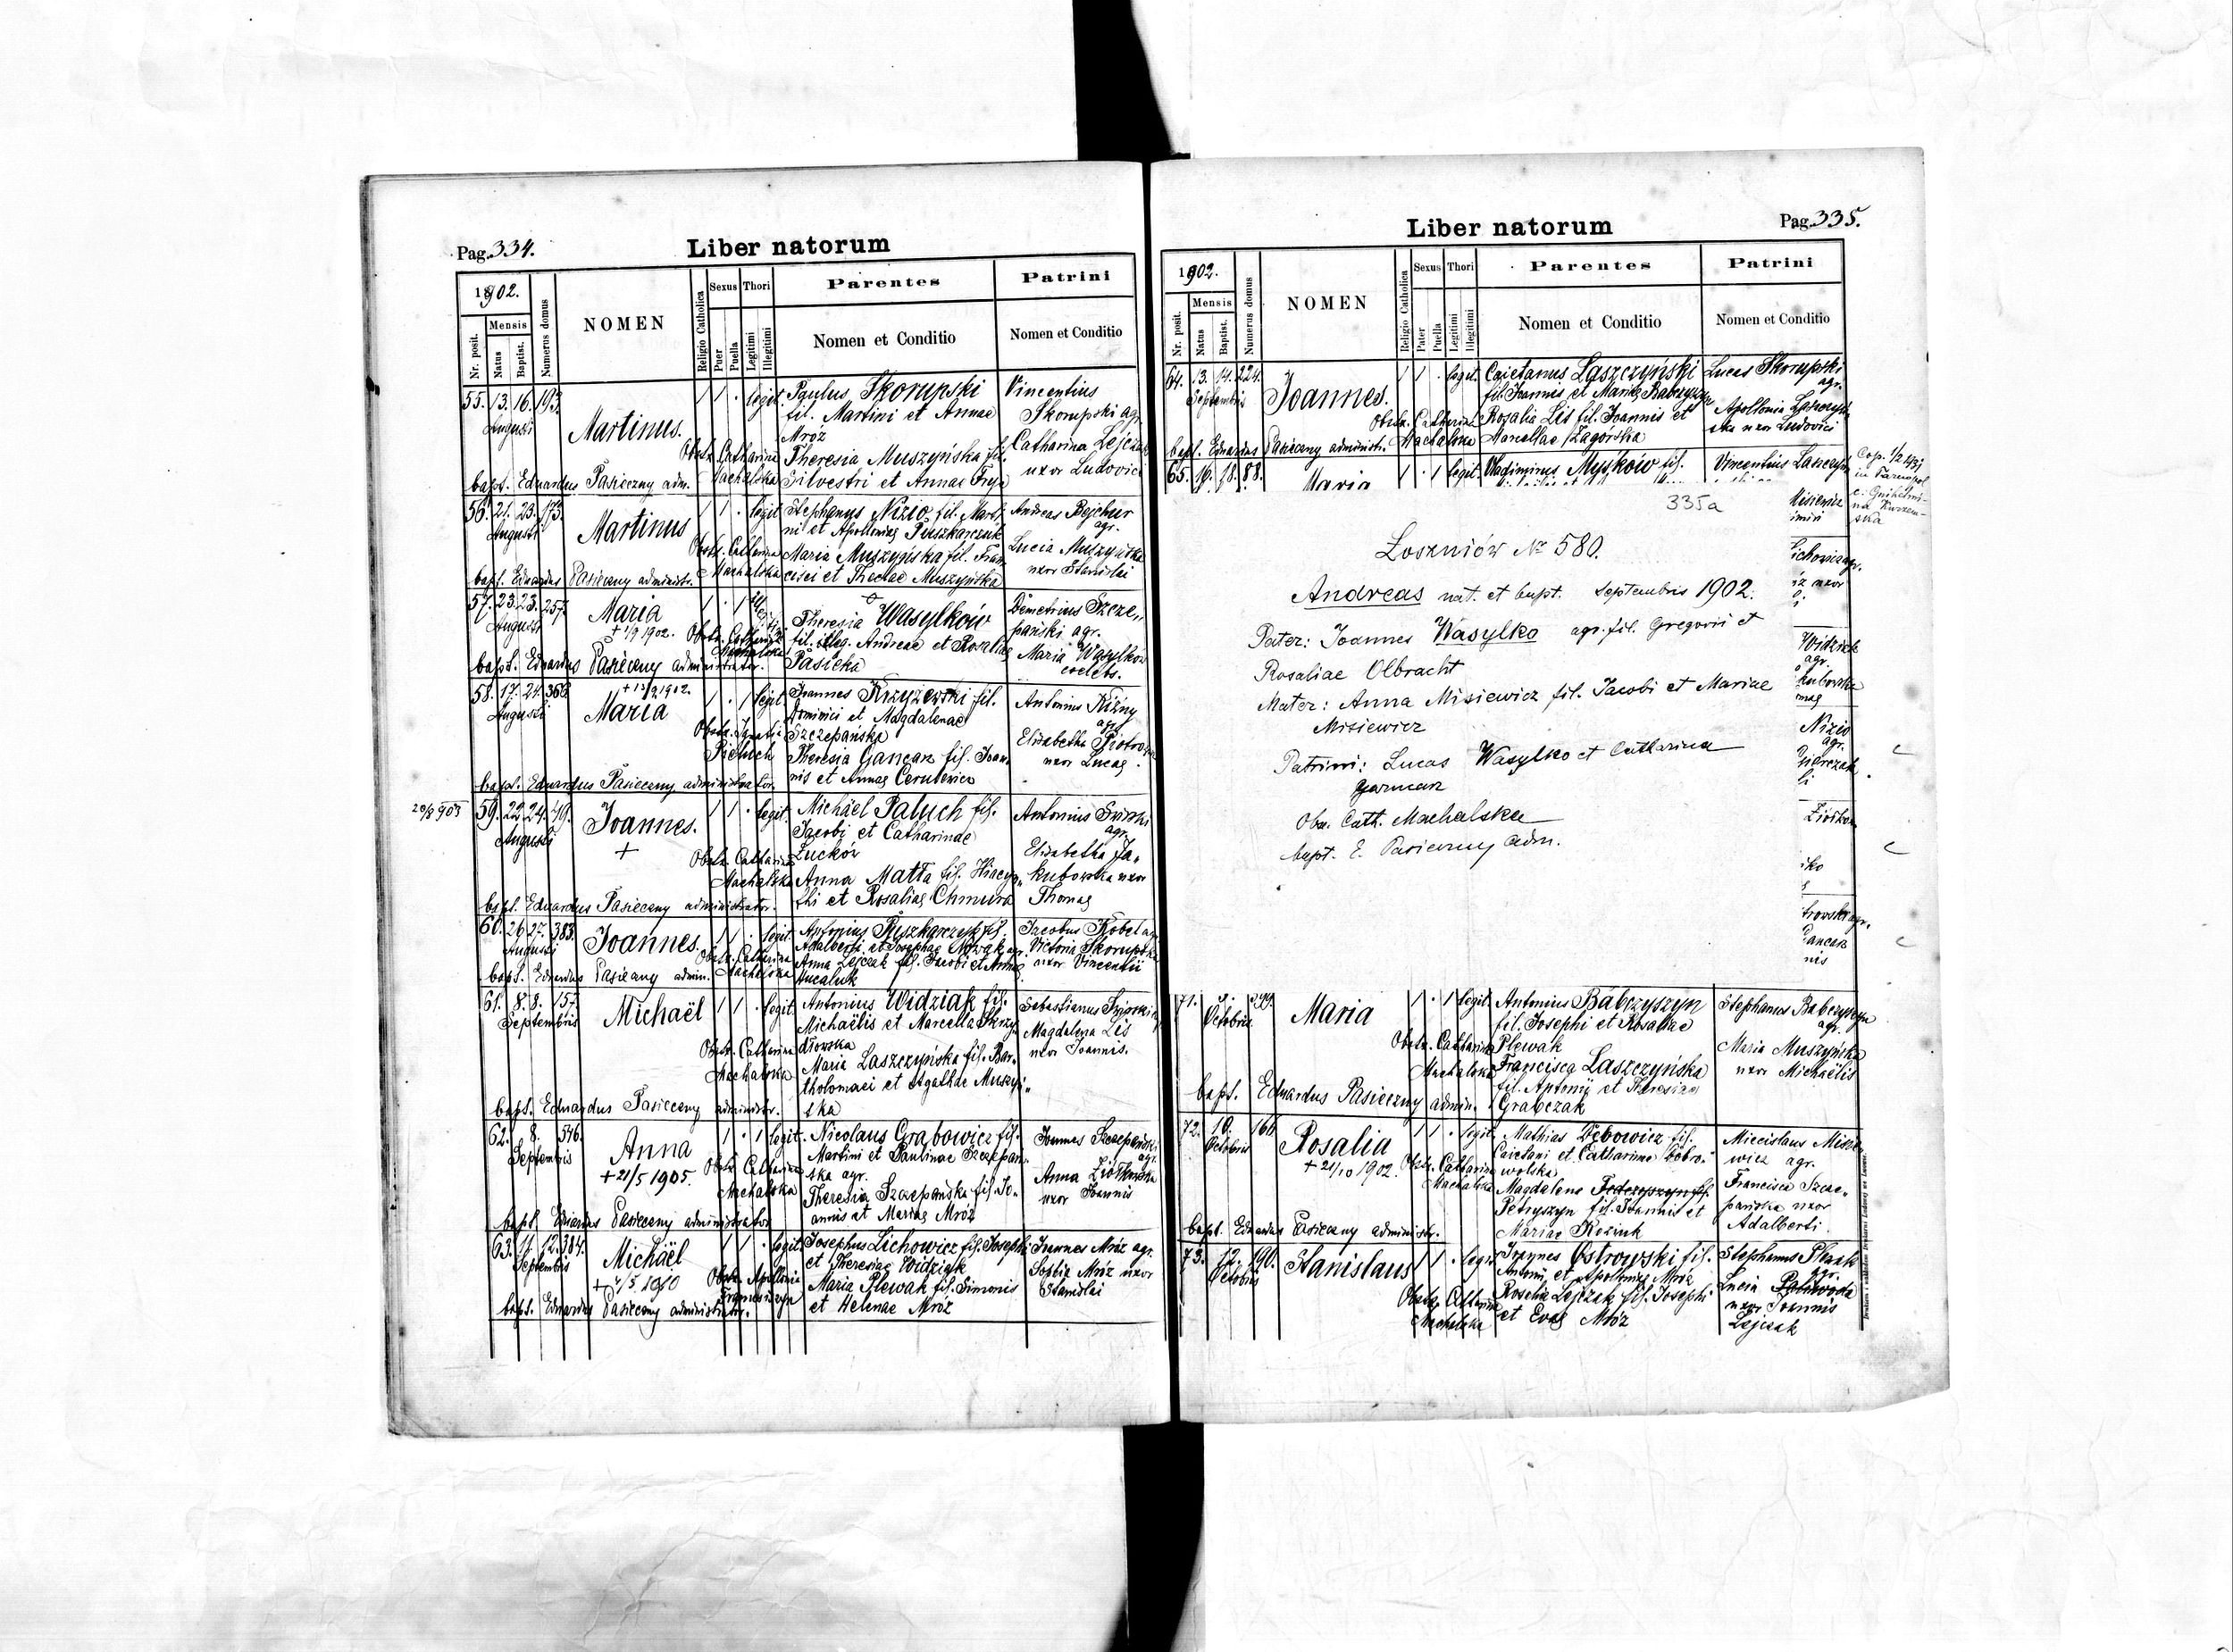 Pag. 334.
Liber natorum
1902.
Nr. posit.
Mensis
Natus
Baptist.
Numerus domus
NOMEN
Religio Catholica
Sexus
Puer
Puella
Thori
Legitimi
Illegitimi
Parentes
Nomen et Conditio
Patrini
Nomen et Conditio
55. 13. 16. 193. Martinus. 1 1 . legit. Paulus Skorupski Vincentius
Augusti fil. Martini et Annae Skorupski agr.
Mróz Catharina Lejczak
Obstr. Catharina Theresia Muszyńska fil. uxor Ludovici
bapt. Eduardus Pasieczny adm. Machalska Silvestri et Annae
56. 21. 23. 173. Martinus 1 1 . legit Stephanus Nizio fil. Marti Andreas Bejchur
Augusti ni et Apolloniae Puszkarczuk agr.
Obstr. Catharina Maria Muszyńska fil. Fran Lucia Muszyńska
bapt. Eduardus Pasieczny administr. Machalska cisci et Theclae Muszyńska uxor Stanislai
57. 23. 23. 257. Maria 1 . 1 Theresia Wasylków Demetrius Szcze„
Augusti + 1/9 1902. Obstr. Catharina fil. illeg. Andreae et Rosaliae pański agr.
Machalska Pasieka Maria Wasylków
bapt. Eduardus Pasieczny administrator. coelebs.
58. 17. 24. 368. + 13/9 1902. 1 . 1 legit Joannes Krzyżewski fil. Antonius Rizny
Augusti Maria Dominici et Magdalenae agr.
Szczepańska Elisabetha
Theresia Gancarz fil. Joan uxor Lucae
bapt. Eduardus Pasieczny administrator. nis et Annae
59. 22. 24. 49. Joannes. 1 1 . legit. Michaël Paluch fil. Antonius
Augusti + Jacobi et Catharinae agr.
Obstr. Catharina Elisabetha Ja„
Machalska Anna Matta fil. Hiacyn„ kubowska uxor
bapt. Eduardus Pasieczny administrator. thi et Rosaliae Chmura Thomae
60. 26. 27. 383. Joannes. 1 1 . legit Antonius Puszkarczyk fil. Jacobus Kobel agr
Augusti Adalberti et Josephae Nowak agr. Victoria Skorupska
Obstr. Catharina Anna Lejczak fil. Jacobi et Annae uxor Vincentii
bapt. Eduardus Pasieczny admin. Machalska
61. 8. 8. 157. Michaël 1 1 . legit. Antonius Widziak fil. Sebastianus
Septembris Michaëlis et Marcella Skrzy Magdalena Lis
Obstr. Catharina dłowska uxor Joannis.
Machalska Maria Laszczyńska fil. Bar„
tholomaei et Agathae Muszyń„
bapt. Eduardus Pasieczny administr. ska
62. 8. 346. Anna 1 . 1 legit. Nicolaus Grabowicz fil. Joannes Szczepański
Septembris + 21/5 1905. Martini et Paulinae Szczepań agr.
Obstr. Catharina ska agr. Anna Ziółkowska
Machalska Theresia Szczepańska fil. Jo„ uxor Joannis
bapt. Eduardus Pasieczny administrator annis et Mariae Mróz
63. 11. 12. 384. Michäel 1 1 . legit Josephus Lichowicz fil. Josephi Joannes Mróz agr.
Septembris et Theresiae Widziak Sophia Mróz uxor
Obstr. Apollonia Maria Plewak fil. Simonis Stanislai
bapt. Eduardus Pasieczny administrator. et Helenae Mróz
Liber natorum
Pag. 335.
1902.
Nr. posit.
Mensis
Natus
Baptist.
Numerus domus
NOMEN
Religio Catholica
Sexus
Puer
Puella
Thori
Legitimi
Illegitimi
Parentes
Nomen et Conditio
Patrini
Nomen et Conditio
64. 13. 14. 224. Joannes. 1 1 . legit. Caietanus Laszczyński Lucas Skorupski
Septembris fil. Joannis et Mariae Babczyszyn agr.
Obstr. Catharina Rosalia Lis fil. Joannis et Apollonia Laszczyń
bapt. Eduardus Pasieczny administr. Machalska Marcellae Zagórska ska uxor Ludovici
65. 16. 18. 88. Maria 1 . 1 legit. Vladimirus Myszków fil. Vincentius Laszczyń
Cop. 1/2 1931
in Tarnopol
335a
Łoszniów № 580.
Andreas nat. et bapt. Septembris 1902.
Pater: Joannes Wasylko agr. fil. Gregorii et
Rosaliae Olbracht
Mater: Anna Misiewicz fil. Jacobi et Mariae
Misiewicz
Patrini: Lucas Wasylko et Catharina
Garncarz
Obs. Cath. Machalska
bapt. E. Pasieczny adm.
71. Maria 1 . 1 legit Antonius Babczyszyn Stephanus Babczyszyn
Octobris fil. Josephi et Rosaliae agr.
Obstr. Catharina Plewak Maria Muszyńska
Machalska Francisca Laszczyńska uxor Michaëlis
fil. Antonii et Theresiae
bapt. Eduardus Pasieczny admin. Grabczak
72. 10. 166. Rosalia legit. Mathias Dębowicz fil. Miecislaus Misie
Octobris + 21/10 1902. Caietani et Catharinae Dobro„ wicz agr.
Obstr. Catharina wolska Francisca Szcze„
Machalska Magdalena pańska uxor
Petryszyn fil. Joannis et Adalberti
bapt. Eduardus Pasieczny administr. Mariae
73. 12. 190. Stanislaus 1 1 . legit Joannes Ostrowski fil. Stephanus
Octobris Antonii et Apolloniae Mróz agr.
Obstr. Catharina Rosalia Lejczak fil. Josephi Lucia
Machalska et Evae Mróz uxor Joannis
Lejczak